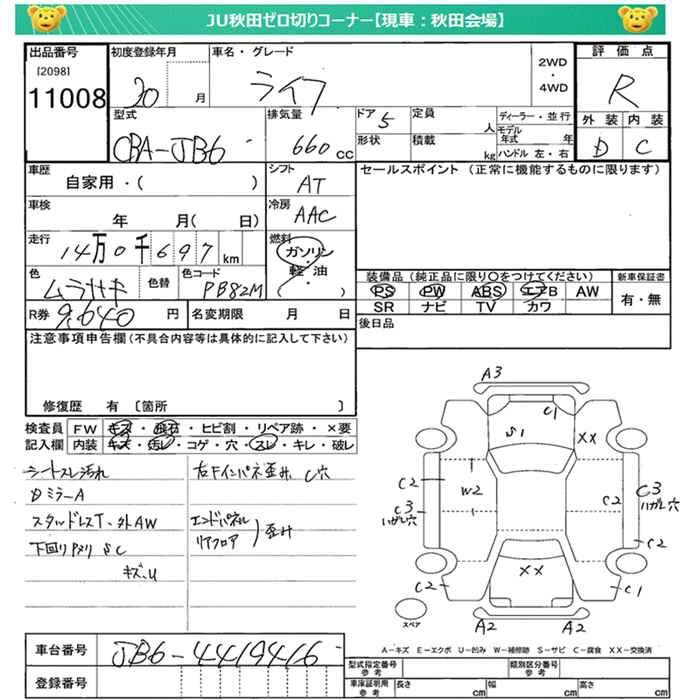 JU秋田ゼロ切りコーナー【現車：秋田会場】
出品番号 初度登録年月 車名・グレード 評価点
[2098] 2WD
11008 20 月 ライフ ・ R
4WD
型式 排気量 ドア 5 定員 人 ディーラー・並行 外装 内装
CBA-JB6 660 cc 形状 積載 kg モデル年式 年 D C
ハンドル 左・右
車歴 シフト セールスポイント（正常に機能するものに限ります）
自家用・( ) AT
車検 冷房
年 月( 日) AAC
走行 燃料
14万0千697 km ガソリン
色 色替 色コード 軽・油 装備品（純正品に限り○をつけてください） 新車保証書
ムラサキ PB82M ( ) PS PW ABS エアB AW 有・無
SR ナビ TV カワ
R券 9,640 円 名変期限 月 日 後日品
注意事項申告欄(不具合内容等は具体的に記入して下さい)
修復歴 有 〔箇所 〕
検査員 FW キズ・飛石・ヒビ割・リペア跡・×要
記入欄 内装 キズ・汚レ・コゲ・穴・スレ・キレ・破レ
シートスレ汚れ 右Fインパネ歪み C穴
ミラーA
スタッドレスT・外AW エンドパネル
下回り SC リアフロア 歪み
キズ、U
A3
C1
S1 XX
C2 W2 C2 C3
C3 ハガレ穴
ハガレ穴 C2
XX
C2 C1
スペア A2 A2
A-キズ E-エクボ U-凹み W-補修跡 S-サビ C-腐食 XX-交換済
車台番号 JB6-4419416
登録番号
型式指定番号 参考 類別区分番号 参考
車体証明用 参考 長さ cm 幅 cm 高さ cm